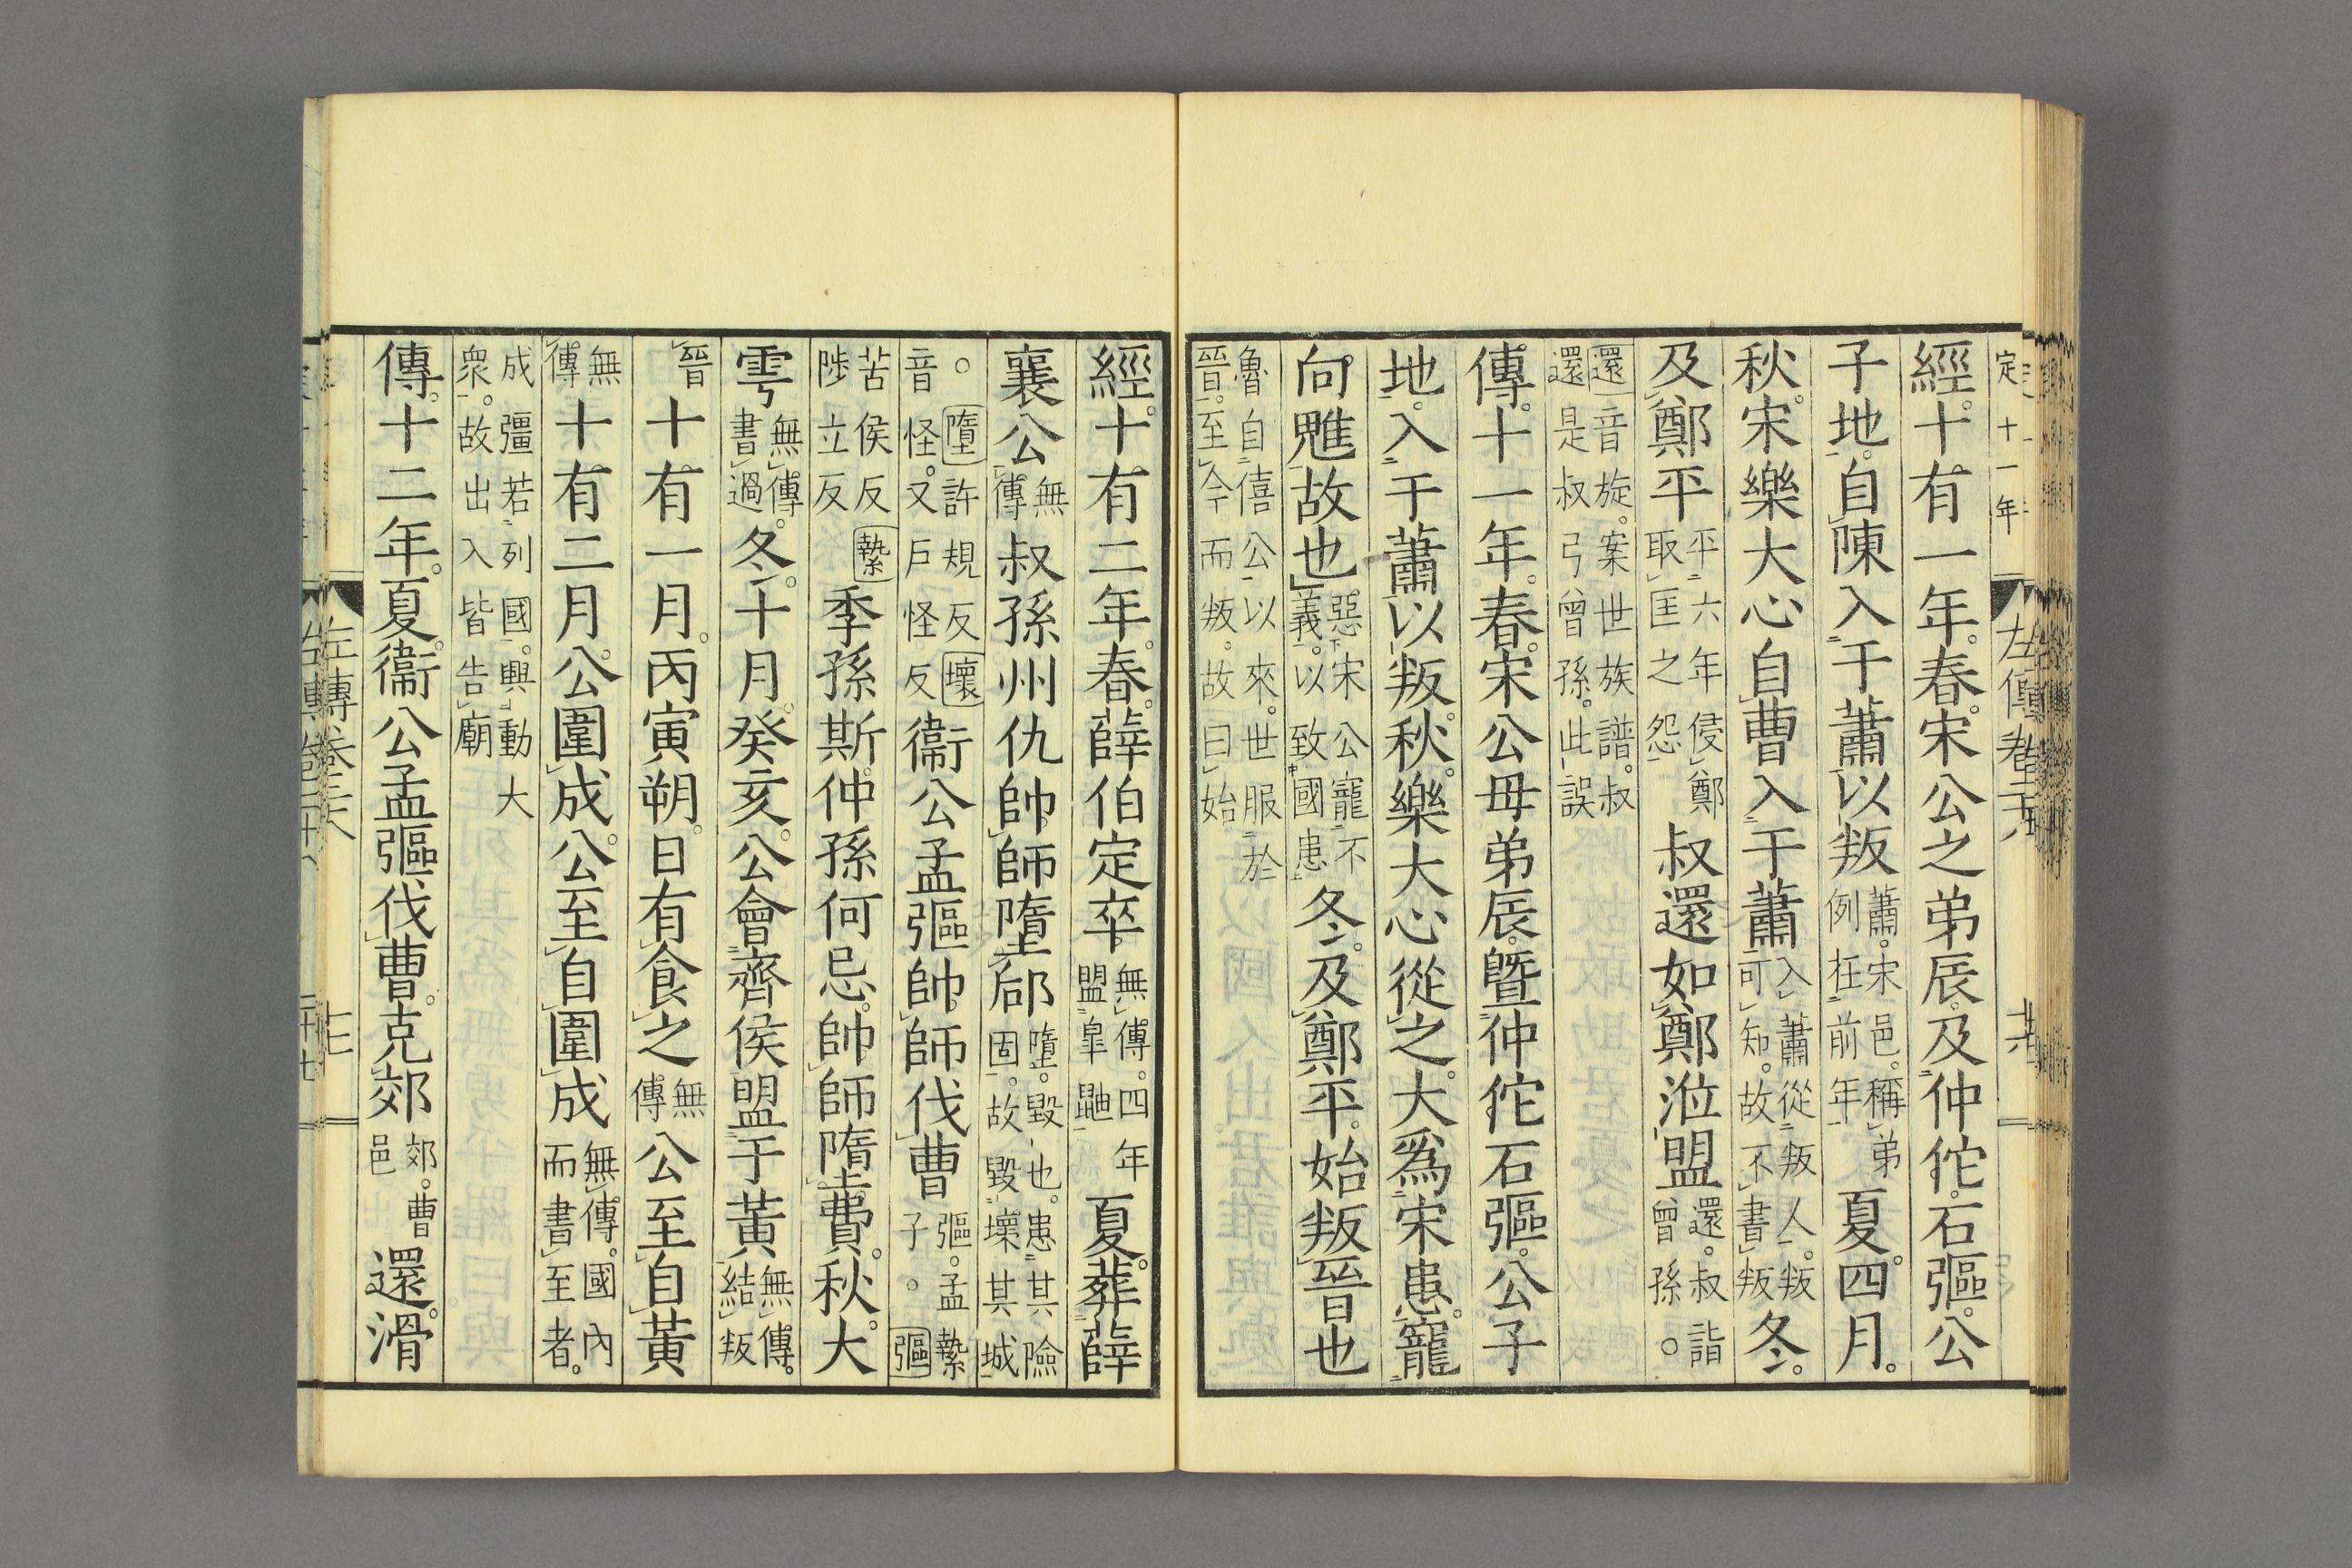 定十一年
經。十有一年。春。宋公之弟辰。及仲佗。石彄。公
子地。自陳入于蕭以叛蕭。宋邑。稱弟例在前年夏。四月。
秋。宋樂大心自曹入于蕭入蕭從叛人。叛可知。故不書叛冬。
及鄭平平六年侵鄭取匡之怨叔還如鄭涖盟還。叔詣曾孫。
還音旋。案世族譜。叔還是叔弓曾孫。此誤
傳。十一年。春。宋公母弟辰。暨仲佗石彄。公子
地。入于蕭以叛。秋。樂大心從之。大爲宋患。寵
向魋故也惡宋公寵不義。以致國患冬。及鄭平。始叛晉也
魯自僖公以來。世服於晉。至今而叛。故曰始
經。十有二年。春。薛伯定卒。無傳。四年盟皐鼬夏。葬薛
襄公無傳叔孫州仇帥師墮郈墮。毀也。患其險固。故毀壞其城
。墮許規反壞音怪。又戶怪反衞公孟彄帥師伐曹彄。孟縶子。彄
苦侯反縶陟立反季孫斯。仲孫何忌。帥師墮費。秋。大
雩無傳書過。冬。十月。癸亥。公會齊侯盟于黃無傳。結叛
晉十有一月。丙寅朔。日有食之無傳公至自黃
無傳十有二月。公圍成。公至自圍成無傳。國內而書至者。
成彊若列國。興動大衆。故出入皆告廟
傳。十二年。夏。衞公孟彄伐曹。克郊郊。曹邑還。滑